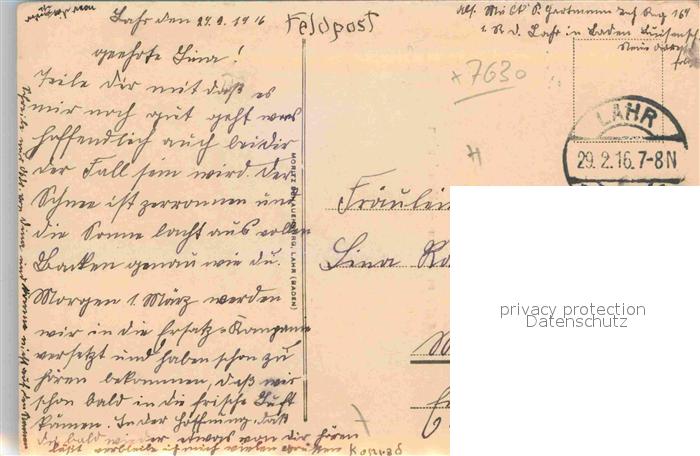 Lahr den 29.2.1916
Feldpost
geehrte Lina!
Teile dir mit daß es
mir noch gut geht was
hoffendlich auch bei dir
der Fall sein wird. Der
Schnee ist zerronnen und
die Sonne lacht aus vollen
Backen genau wie du.
Morgen 1. März werden
wir in die Ersatz-Kompanie
versetzt und haben schon zu
hören bekommen, daß wir
schon bald in die frische Luft
kämen. In der Hoffnung, daß
du bald wieder etwas von dir hören
läßt verbleibe ich mit vielen Grüßen Konrad
Abs. Hartmann 169
Lahr in Baden
+7630
LAHR
29.2.16.7-8N
MORITZ SCHAUENBURG, LAHR (BADEN)
Fräulein
Lina
privacy protection
Datenschutz